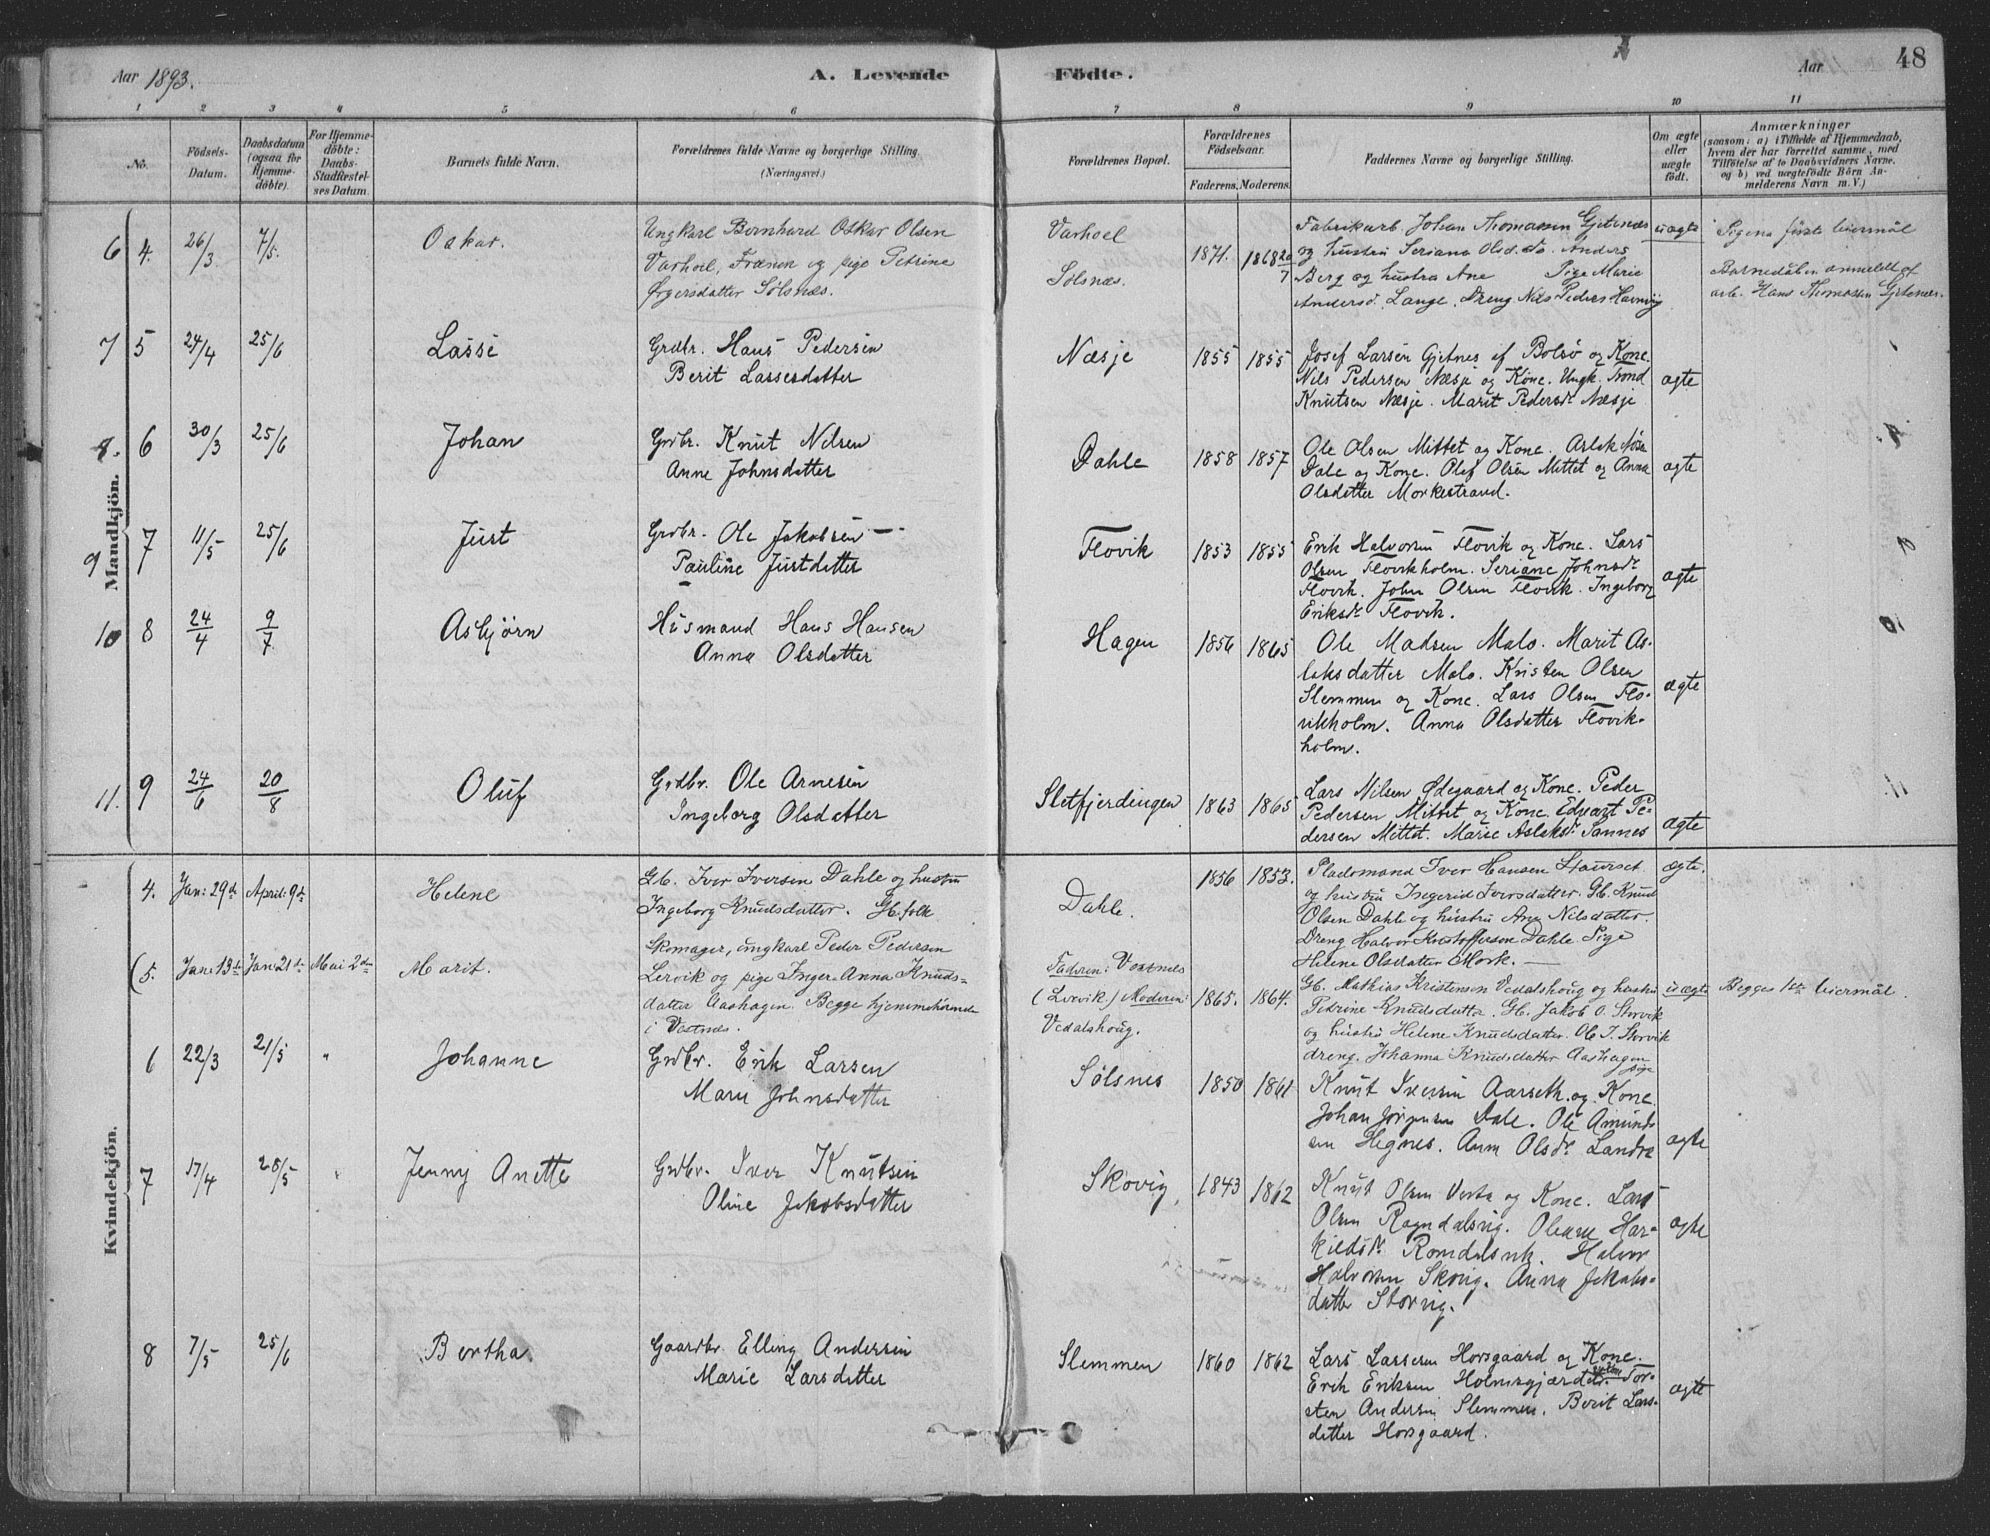 Aar 1893.
A. Levende
Födte.
Aar
48
1 2 3 4 5 6 7 8 9 10 11
No.
Födsels-
Datum.
Daabsdatum
(ogsaa for
Hjemme-
döbte).
For Hjemme-
döbte:
Daabs-
Stadfæstel-
ses Datum.
Barnets fulde Navn.
Forældrenes fulde Navne og borgerlige Stilling.
(Næringsvei.)
Forældrenes Bopæl.
Forældrenes
Födselsaar.
Faderens. Moderens.
Faddernes Navne og borgerlige Stilling.
Om ægte
eller
uægte
födt.
Anmærkninger
(saasom: a) i Tilfælde af Hjemmedaab,
hvem der har forrettet samme, med
Tilföielse af to Daabsvidners Navne.
og b) ved uægtefödte Börn An-
melderens Navn m. V.)
Mandkjön.
6 4. 26/3 7/5.
Oskar.
Ungkarl Bernhard Oskar Olsen
Varhoel, Frænen og pige Petrine
Ørgersdatter Sølsnæs.
Varhoel
Sølsnæs.
1871. 1868 20/7
Fabrikarb. Johan Thomassen Gjetnæs
og hustru Seriana Olsd. Anders
Berg og hustru Ane Pige Marie
Andersd. Lange. Dreng Nils Peders Havnvig
uægte
Pigens første leiermål
Barnedåben anmeldt af
arb. Hans Thomassen Gjetnæs.
7 5 24/4 25/6
Lasse
Grdbr. Hans Pedersen
Berit Lassesdatter
Næsje
1855 1855
Josef Larsen Gjetnes af Bolsø og Kone.
Nils Pedersen Næsje og Kone. Ungk. Trond
Knutsen Næsje. Marit Pedersdr Næsje
ægte
8. 6 30/3 25/6
Johan
Grdbr. Knut Nilsen
Anne Johnsdatter
Dahle
1858 1857
Ole Olsen Mittet og Kone. Aslak
Dale og Kone. Olef Olsen Mittet og Anna
Olsdatter Morkestrand.
ægte
9 7 11/5 25/6
Just
Grdbr. Ole Jakobsen —
Pauline Justdatter
Flovik
1853 1855
Erik Halvorsen Flovik og Kone. Lars
Olsen Flovikholm. Seriane Johnsdr
Flovik. John Olsen Flovik. Ingeborg
Eriksdr Flovik.
ægte
10 8 24/4 9/7
Asbjørn
Husmand Hans Hansen
Anna Olsdatter
Hagen
1856 1865
Ole Madsen Malo. Marit As-
laksdatter Malo. Kristen Olsen
Slemmen og Kone. Lars Olsen Flo-
vikholm. Anna Olsdatter Flovik-
holm.
ægte
11. 9 24/6 20/8
Oluf
Grdbr. Ole Arnesen
Ingeborg Olsdatter
Sletfjerdingen
1863 1865
Lars Nilsen Ødegaard og Kone. Peder
Pedersen Mittet og Kone. Edvart Pe-
dersen Mittet. Marie Aslaksdr Sannes
ægte
Kvindekjön.
4. Jan: 29de April: 9de
Helene
Gb. Iver Iversen Dahle og hustru
Ingeborg Knudsdatter. Gb. folk
Dahle.
1856 1853.
Pladsmand Iver Hansen
og hustru Ingerid Iversdatter. Gb. Knud
Olsen Dahle og hustru Ane Nilsdatter.
Dreng Halvor Kristoffersen Dahle Pige
Helene Olsdatter Mork. —
ægte.
(5. Jan: 13de Jan: 21de Mai 2den
Marit.
Skomager, ungkarl Peder Pedersen
Lervik og pige Inger-Anna Knuds-
datter Aashagen. Begge hjemmehørende
i Vestnæs.
Faderen: Vestnæs
(Lervik) Moderen:
Vedalshoug.
1865. 1864.
Gb. Mathias Kristensen Vedalshoug og hustru
Petrine Knudsdatter. Gb. Jakob O. Storvik
og hustru Helene Knudsdatter. Ole J. Storvik
dreng. Johanna Knudsdatter Aashagen
pige
uægte
Begges 1ste leiermål.
6 22/3 21/5 "
Johanne
Grdbr. Erik Larsen
Marie Johnsdatter
Sølsnes
1850 1861
Knut Iversen Aarseth og Kone.
Johan Jørgensen Dale. Ole Amund-
sen Hegnes. Anne Olsdr Landre
ægte
7 17/4 28/5 "
Jenny Anette
Grdbr. Iver Knutsen
Oline Jakobsdatter
Skovig,
1843 1862
Knut Olsen og Kone. Lars
Olsen Rogndalsvig. Oleane Har-
kildsdr Halvor
Halvorsen Skovig. Anna Jakobs-
datter Storvig.
ægte
8 7/5 25/6
Bertha
Gaardbr. Elling Andersen
Marie Larsdatter
Slemmen
1860 1862
Lars Lassesen Horsgaard og Kone.
Erik Eriksen Holmegjærdet. Tor-
sten Andersen Slemmen. Berit Lars-
datter Horsgaard.
ægte